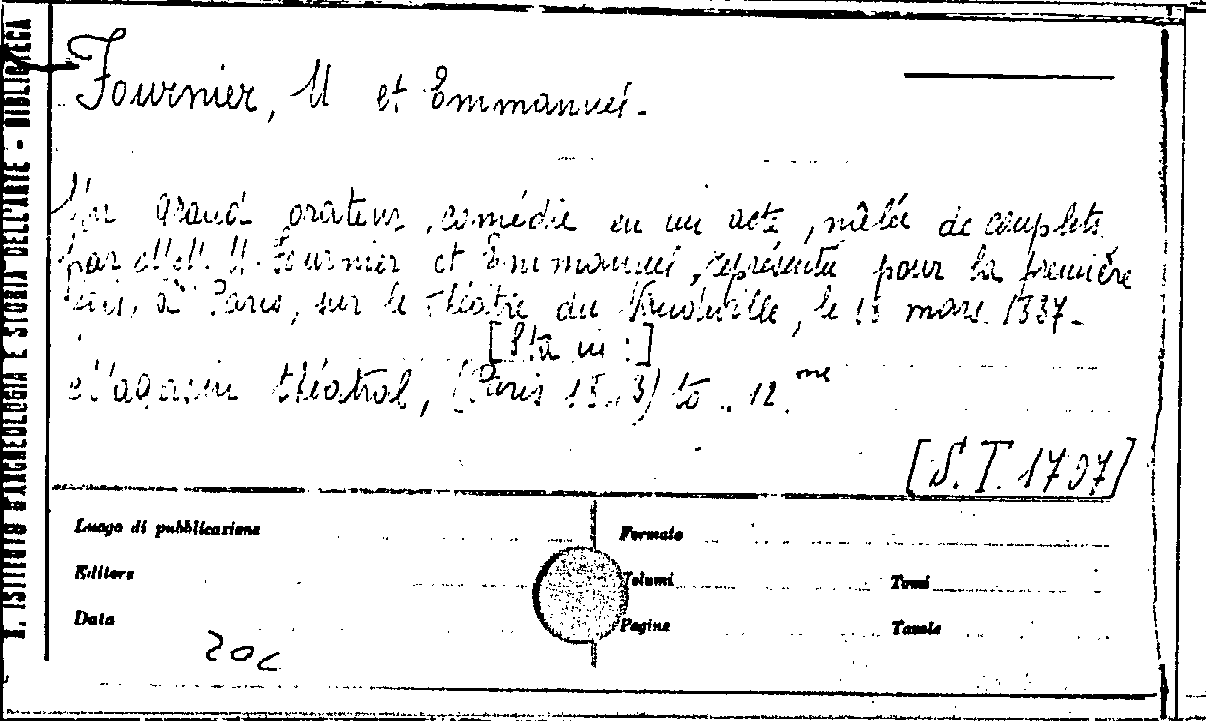 R. ISTITUTO D'ARCHEOLOGIA E STORIA DELL'ARTE - BIBLIOTECA
Fournier, M et Emmanuel.
Un grand orateur, comédie en un acte, mêlée de couplets
par M.M. M. Fournier et Emmanuel, représentée pour la première
fois, à Paris, sur le théâtre du Vaudeville, le mars 1837.
[Sta in:]
Magasin théatral, (Paris to. 12.me
[S. T. 1797]
Luogo di pubblicazione
Formato
Editore
Volumi
Tomi
Data
Pagine
Tavole
20c